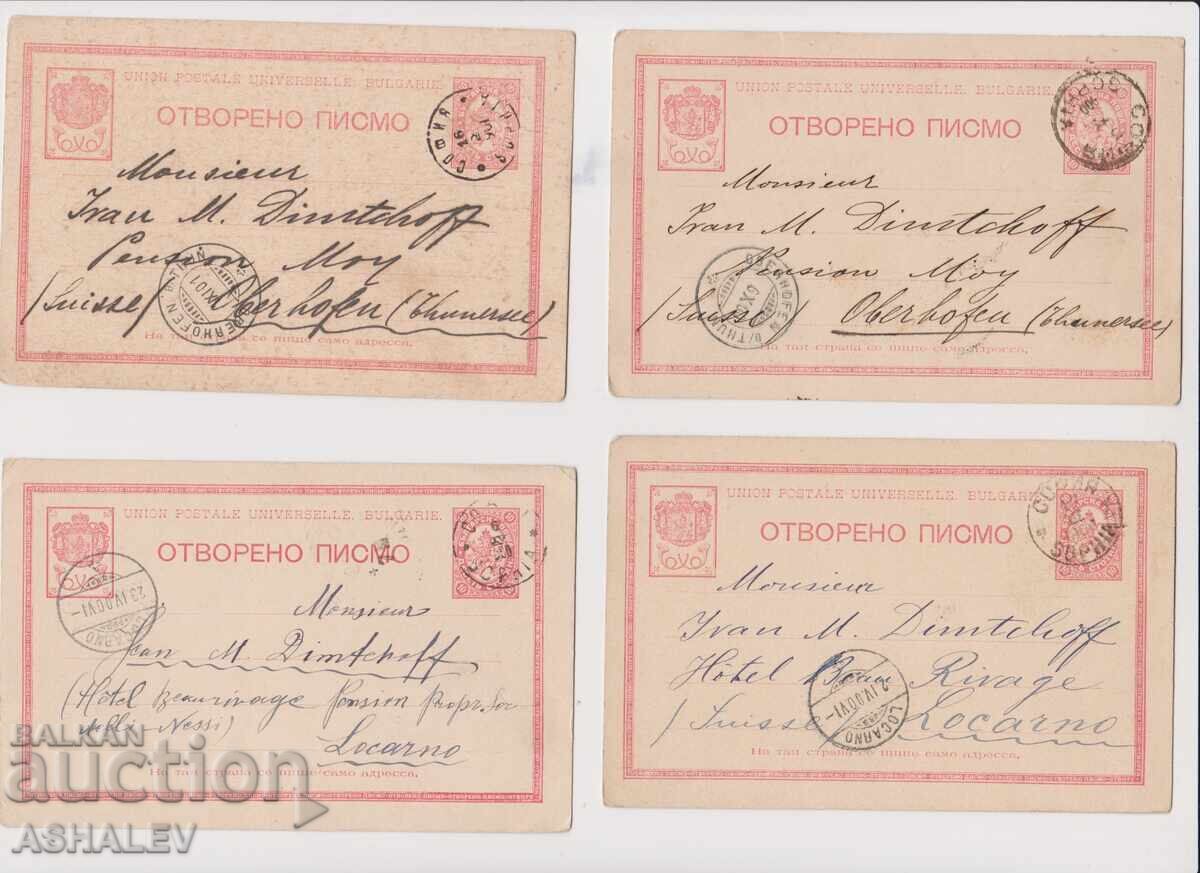 UNION POSTALE UNIVERSELLE. BULGARIE.
ОТВОРЕНО ПИСМО
СОФИЯ
Monsieur
Ivan M. Dimtchoff
Pension Moy
(Suisse) Oberhofen (Thunersee)
OBERHOFEN B/THUN
На тая страна се пише само адресса.
UNION POSTALE UNIVERSELLE. BULGARIE.
ОТВОРЕНО ПИСМО
SOPHIA
Monsieur
Ivan M. Dimtchoff
Pension Moy
(Suisse) Oberhofen (Thunersee)
OBERHOFEN B/THUN
На тая страна се пише само адресса.
UNION POSTALE UNIVERSELLE. BULGARIE.
ОТВОРЕНО ПИСМО
23.IV.00.VI-
LOCARNO
Monsieur
Jean M. Dimtchoff
(Hotel Beaurivage Pension Propr.
Nessi)
Locarno
На тая страна се пише само адресса.
UNION POSTALE UNIVERSELLE. BULGARIE.
ОТВОРЕНО ПИСМО
SOPHIA
Monsieur
Ivan M. Dimtchoff
Hôtel Beau Rivage
(Suisse) Locarno
2.IV.00.VI-
LOCARNO
На тая страна се пише само адресса.
BALKAN
auction
ASHALEV